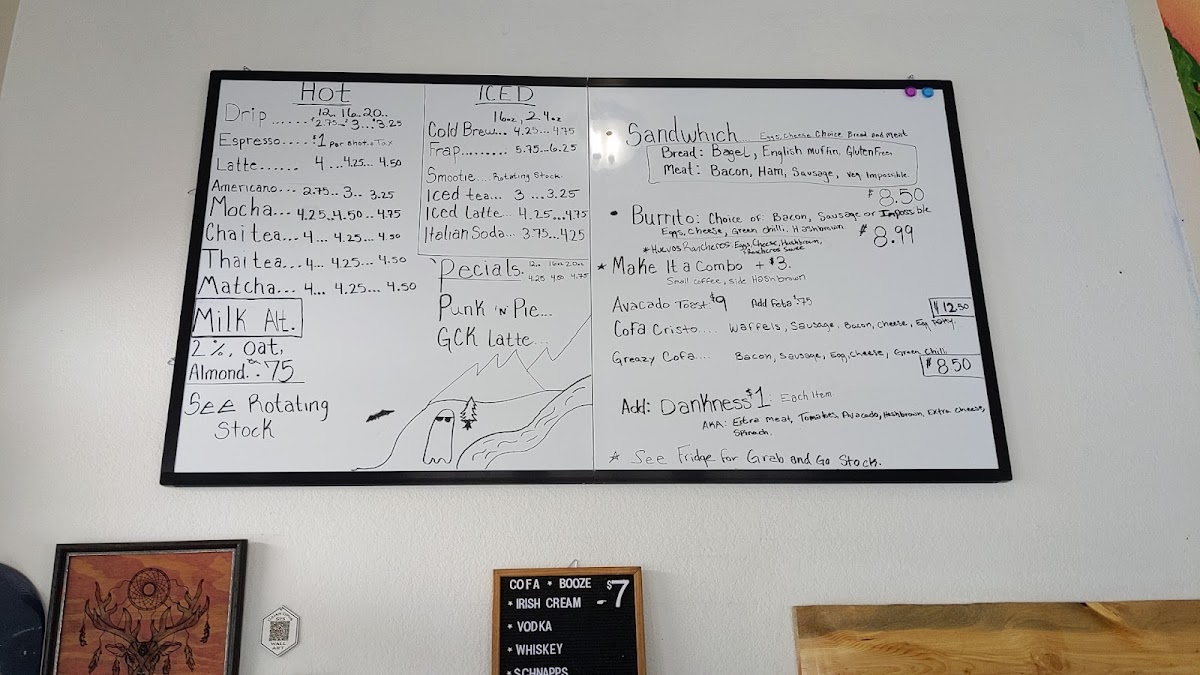 Hot
12oz 16oz 20oz
Drip...... $2.75... 3... $3.25
Espresso.... $1 Per Shot. + Tax
Latte...... 4 ...4.25... 4.50
Americano... 2.75.. 3.. 3.25
Mocha... 4.25..4.50.. 4.75
Chai tea... 4 ... 4.25... 4.50
Thai tea... 4... 4.25... 4.50
Matcha... 4... 4.25... 4.50
Milk Alt.
2%, Oat,
Almond... .75
SEE Rotating
Stock
ICED
16oz, 24oz
Cold Brew... 4.25... 4.75
Frap......... 5.75...6.25
Smootie.... Rotating Stock.
Iced tea... 3 ... 3.25
Iced Latte... 4.25...4.75
Italian Soda... 3.75...4.25
Specials. 12oz 16oz 20oz
4.25 4.50 4.75
Punk 'N' Pie...
GCK Latte...
• Sandwhich Eggs, Cheese Choice Bread and Meat
Bread: Bagel, English Muffin, Gluten Free
Meat: Bacon, Ham, Sausage, Veg Impossible.
$8.50
• Burrito: Choice of: Bacon, Sausage or Impossible
Eggs, Cheese, Green Chili, Hashbrown $8.99
*Huevos Rancheros: Eggs, Cheese, Hashbrown,
Rancheros Sauce
* Make It a Combo + $3.
Small coffee, side Hashbrown
Avacado Toast: $9 Add Feta $.75
$12.50
Cofa Cristo.... Waffels, Sausage, Bacon, Cheese, Egg Patty.
Greazy Cofa.... Bacon, Sausage, Egg, Cheese, Green Chili
$8.50
Add: Dankness $1: Each Item
AKA: Extra Meat, Tomatoes, Avacado, Hashbrown, Extra Cheese,
Spinach.
* See Fridge for Grab and Go Stock.
COFA * BOOZE $7
* IRISH CREAM
* VODKA
* WHISKEY
* SCHNAPPS
WALL
ART